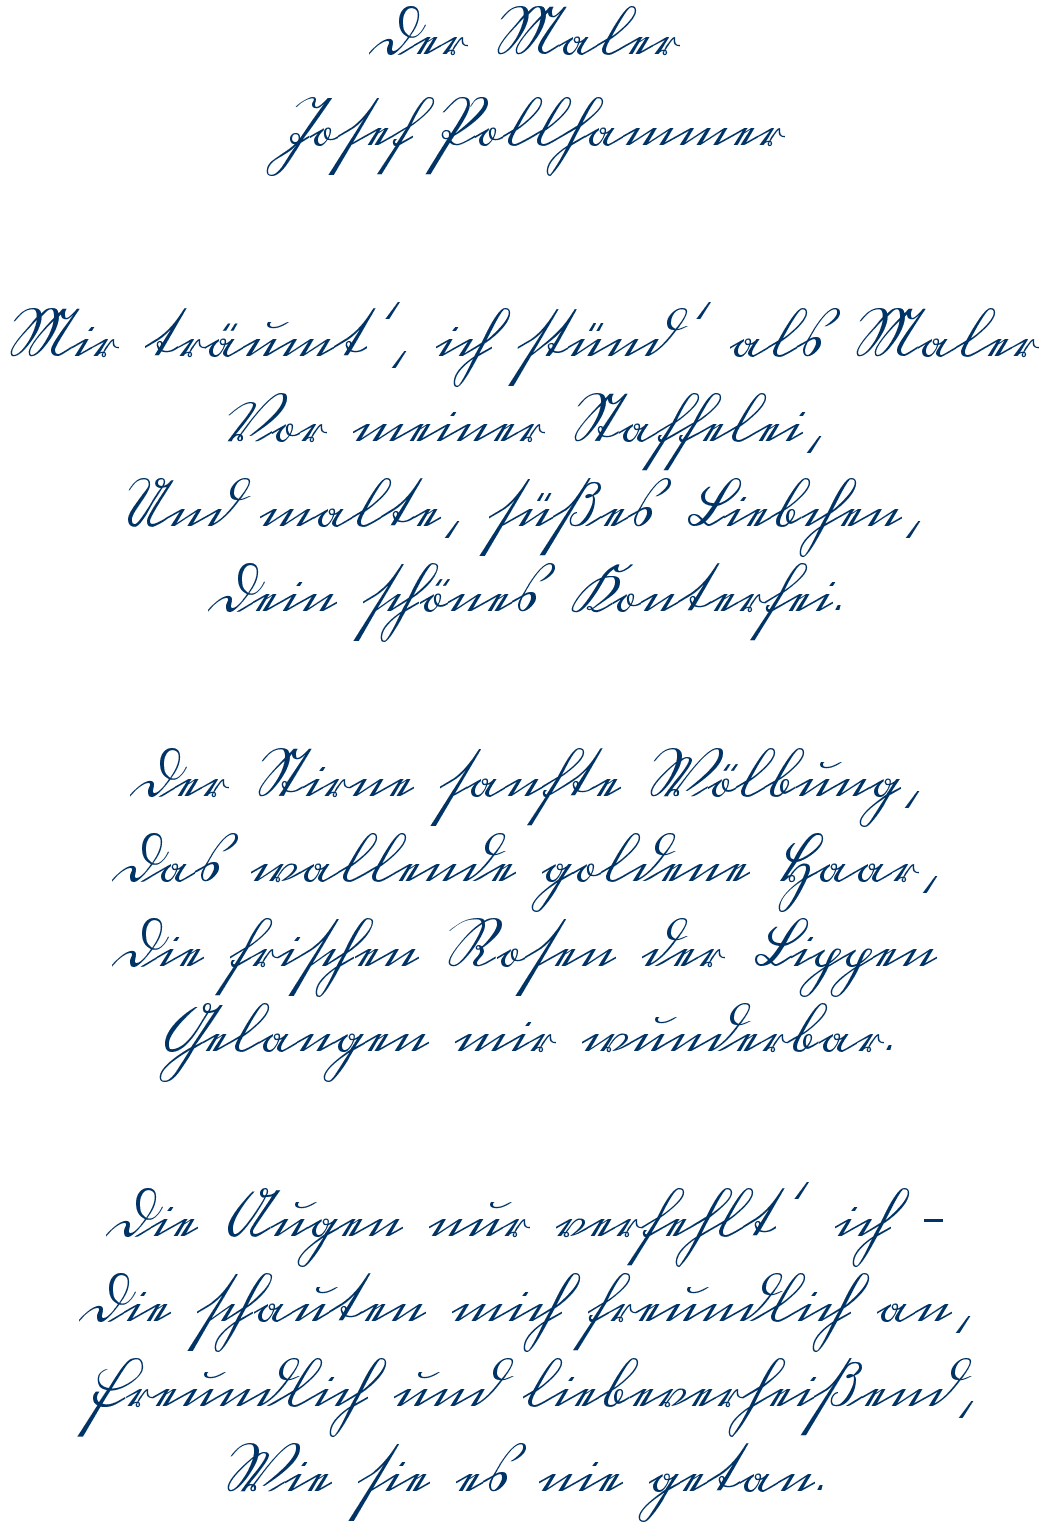 Der Maler
Josef Pollhammer
Mir träumt', ich stünd' als Maler
Vor meiner Staffelei,
Und malte, süßes Liebchen,
Dein schönes Konterfei.
Der Stirne sanfte Wölbung,
Das wallende goldene Haar,
Die frischen Rosen der Lippen
Gelangen mir wunderbar.
Die Augen nur verfehlt' ich –
Die schauten mich freundlich an,
Freundlich und liebeverheißend,
Wie sie es nie getan.